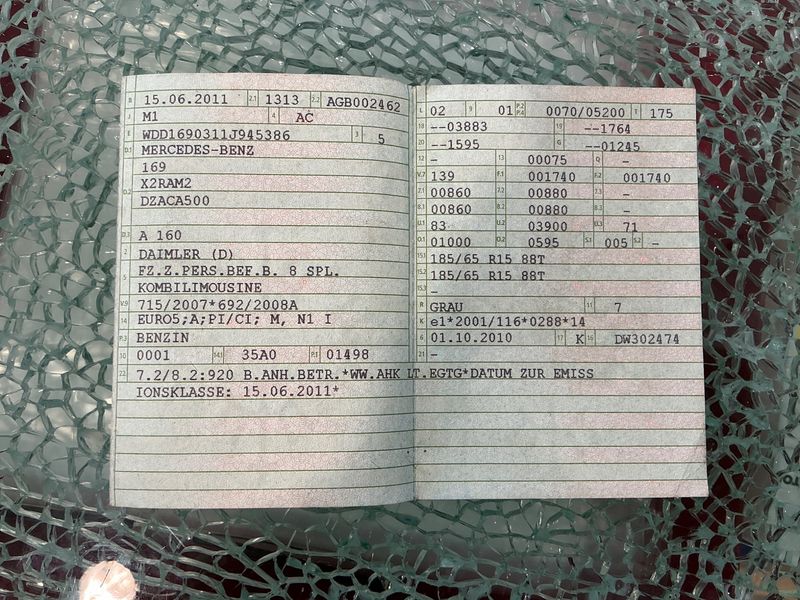 B 15.06.2011 2.1 1313 2.2 AGB002462
J M1 4 AC
E WDD1690311J945386 3 5
D.1 MERCEDES-BENZ
169
D.2 X2RAM2
DZACA500
D.3 A 160
2 DAIMLER (D)
5 FZ.Z.PERS.BEF.B. 8 SPL.
KOMBILIMOUSINE
V.9 715/2007*692/2008A
14 EURO5;A;PI/CI; M, N1 I
P.3 BENZIN
10 0001 14.1 35A0 P.1 01498
22 7.2/8.2:920 B.ANH.BETR.*WW.AHK LT.EGTG*DATUM ZUR EMISS
IONSKLASSE: 15.06.2011*
L 02 9 01 P.2 P.4 0070/05200 T 175
18 --03883 19 --1764
20 --1595 G --01245
12 - 13 00075 Q -
V.7 139 F.1 001740 F.2 001740
7.1 00860 7.2 00880 7.3 -
8.1 00860 8.2 00880 8.3 -
U.1 83 U.2 03900 U.3 71
O.1 01000 O.2 0595 S.1 005 S.2 -
15.1 185/65 R15 88T
15.2 185/65 R15 88T
15.3 -
R GRAU 11 7
K e1*2001/116*0288*14
6 01.10.2010 17 K 16 DW302474
21 -